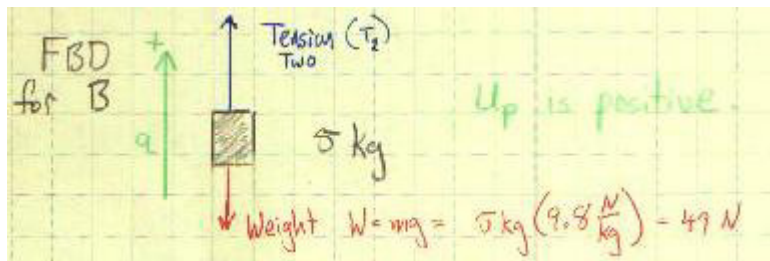 FBD
for B
+
a
Tension (T₂)
Two
5 kg
Up is positive.
Weight W = mg = 5 kg (9.8 N/kg) = 49 N